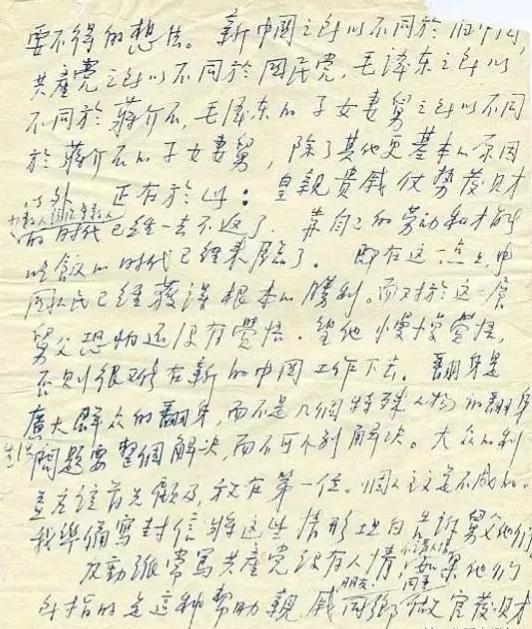 要不得的想法。新中國之所以不同於旧中国
共產党之所以不同於国民党，毛泽东之所以
不同於蒋介石，毛泽东的子女妻舅之所以不同
於蒋介石的子女妻舅，除了其他更基本的原因
以外 正在於此：皇親貴戚仗势發财
少数人国多数人
的时代已经一去不返了。靠自己的劳动和才能
吃飯的时代已经来临了。即在这一点上，中
国人民已经獲得根本的勝利。而对於这一层
舅父恐怕还没有覺悟。望他慢慢覺悟，
否则很难在新的中国工作下去。翻身是
廣大群众的翻身，而不是几個特殊人物的翻身
生活问题要整個解决，而不可个别解决。大众的利
益应该首先顾及，放在第一位。個人主义是不成的。
我準備寫封信将这些情形坦白告诉舅父他们
反動派常骂共產党没有人情，不讲人情，如果他们
所指的是这种帮助親戚朋友同鄉同事做官發财